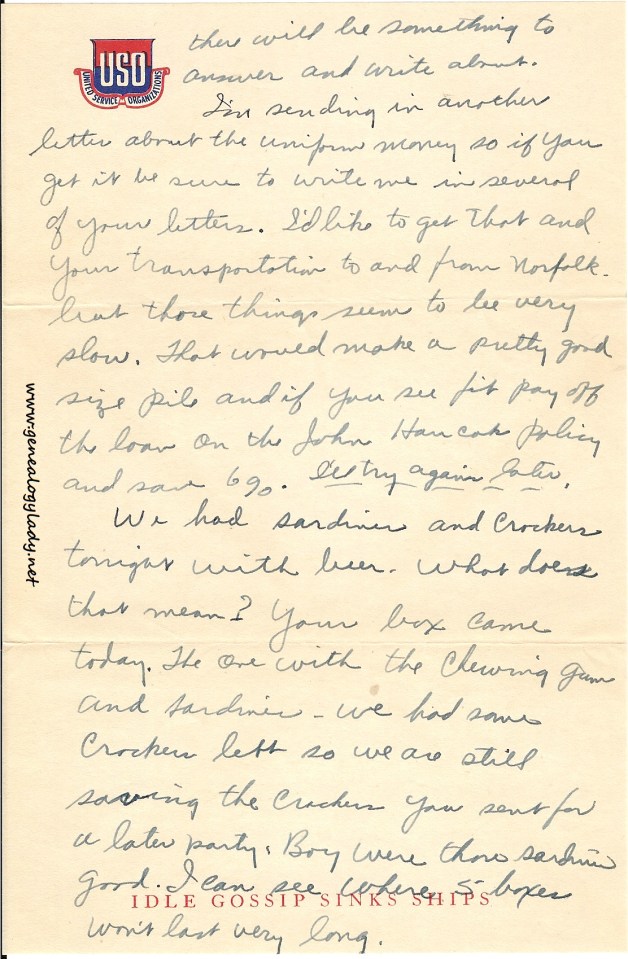 USO
UNITED SERVICE ORGANIZATIONS
there will be something to
answer and write about.
I'm sending in another
letter about the uniform money so if you
get it be sure to write me in several
of your letters. I'd like to get that and
your transportation to and from Norfolk-
but those things seem to be very
slow. That would make a pretty good
size pile and if you see fit pay off
the loan on the John Hancok policy
and save 6%. I'll try again later.
We had sardines and Crackers
tonight with beer. What does
that mean? Your box came
today. The one with the Chewing gum
and sardines - we had some
Crackers left so we are still
saving the Crackers you sent for
a later party. Boy were those sardines
good. I can see where 5 boxes
won't last very long.
IDLE GOSSIP SINKS SHIPS
www.genealogylady.net